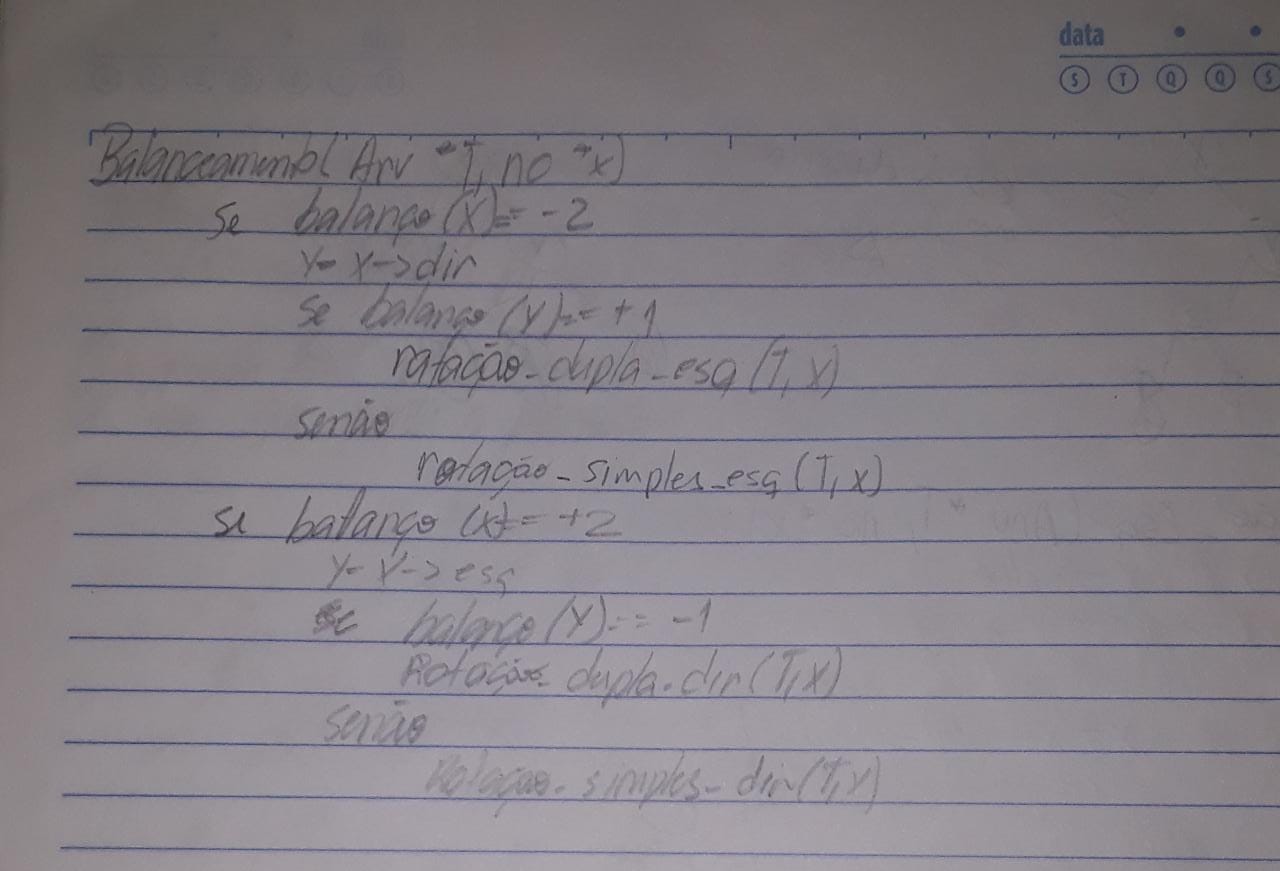 data
S T Q Q S
Balanceamento(Arv *T, no *x)
se balanço(x)== -2
y= x->dir
se balanço(y)== +1
rotação_dupla_esq(T, x)
senão
rotação_simples_esq(T, x)
se balanço(x)== +2
y= x->esq
se balanço(y)== -1
Rotação_dupla_dir(T, x)
senão
Rotação_simples_dir(T, x)